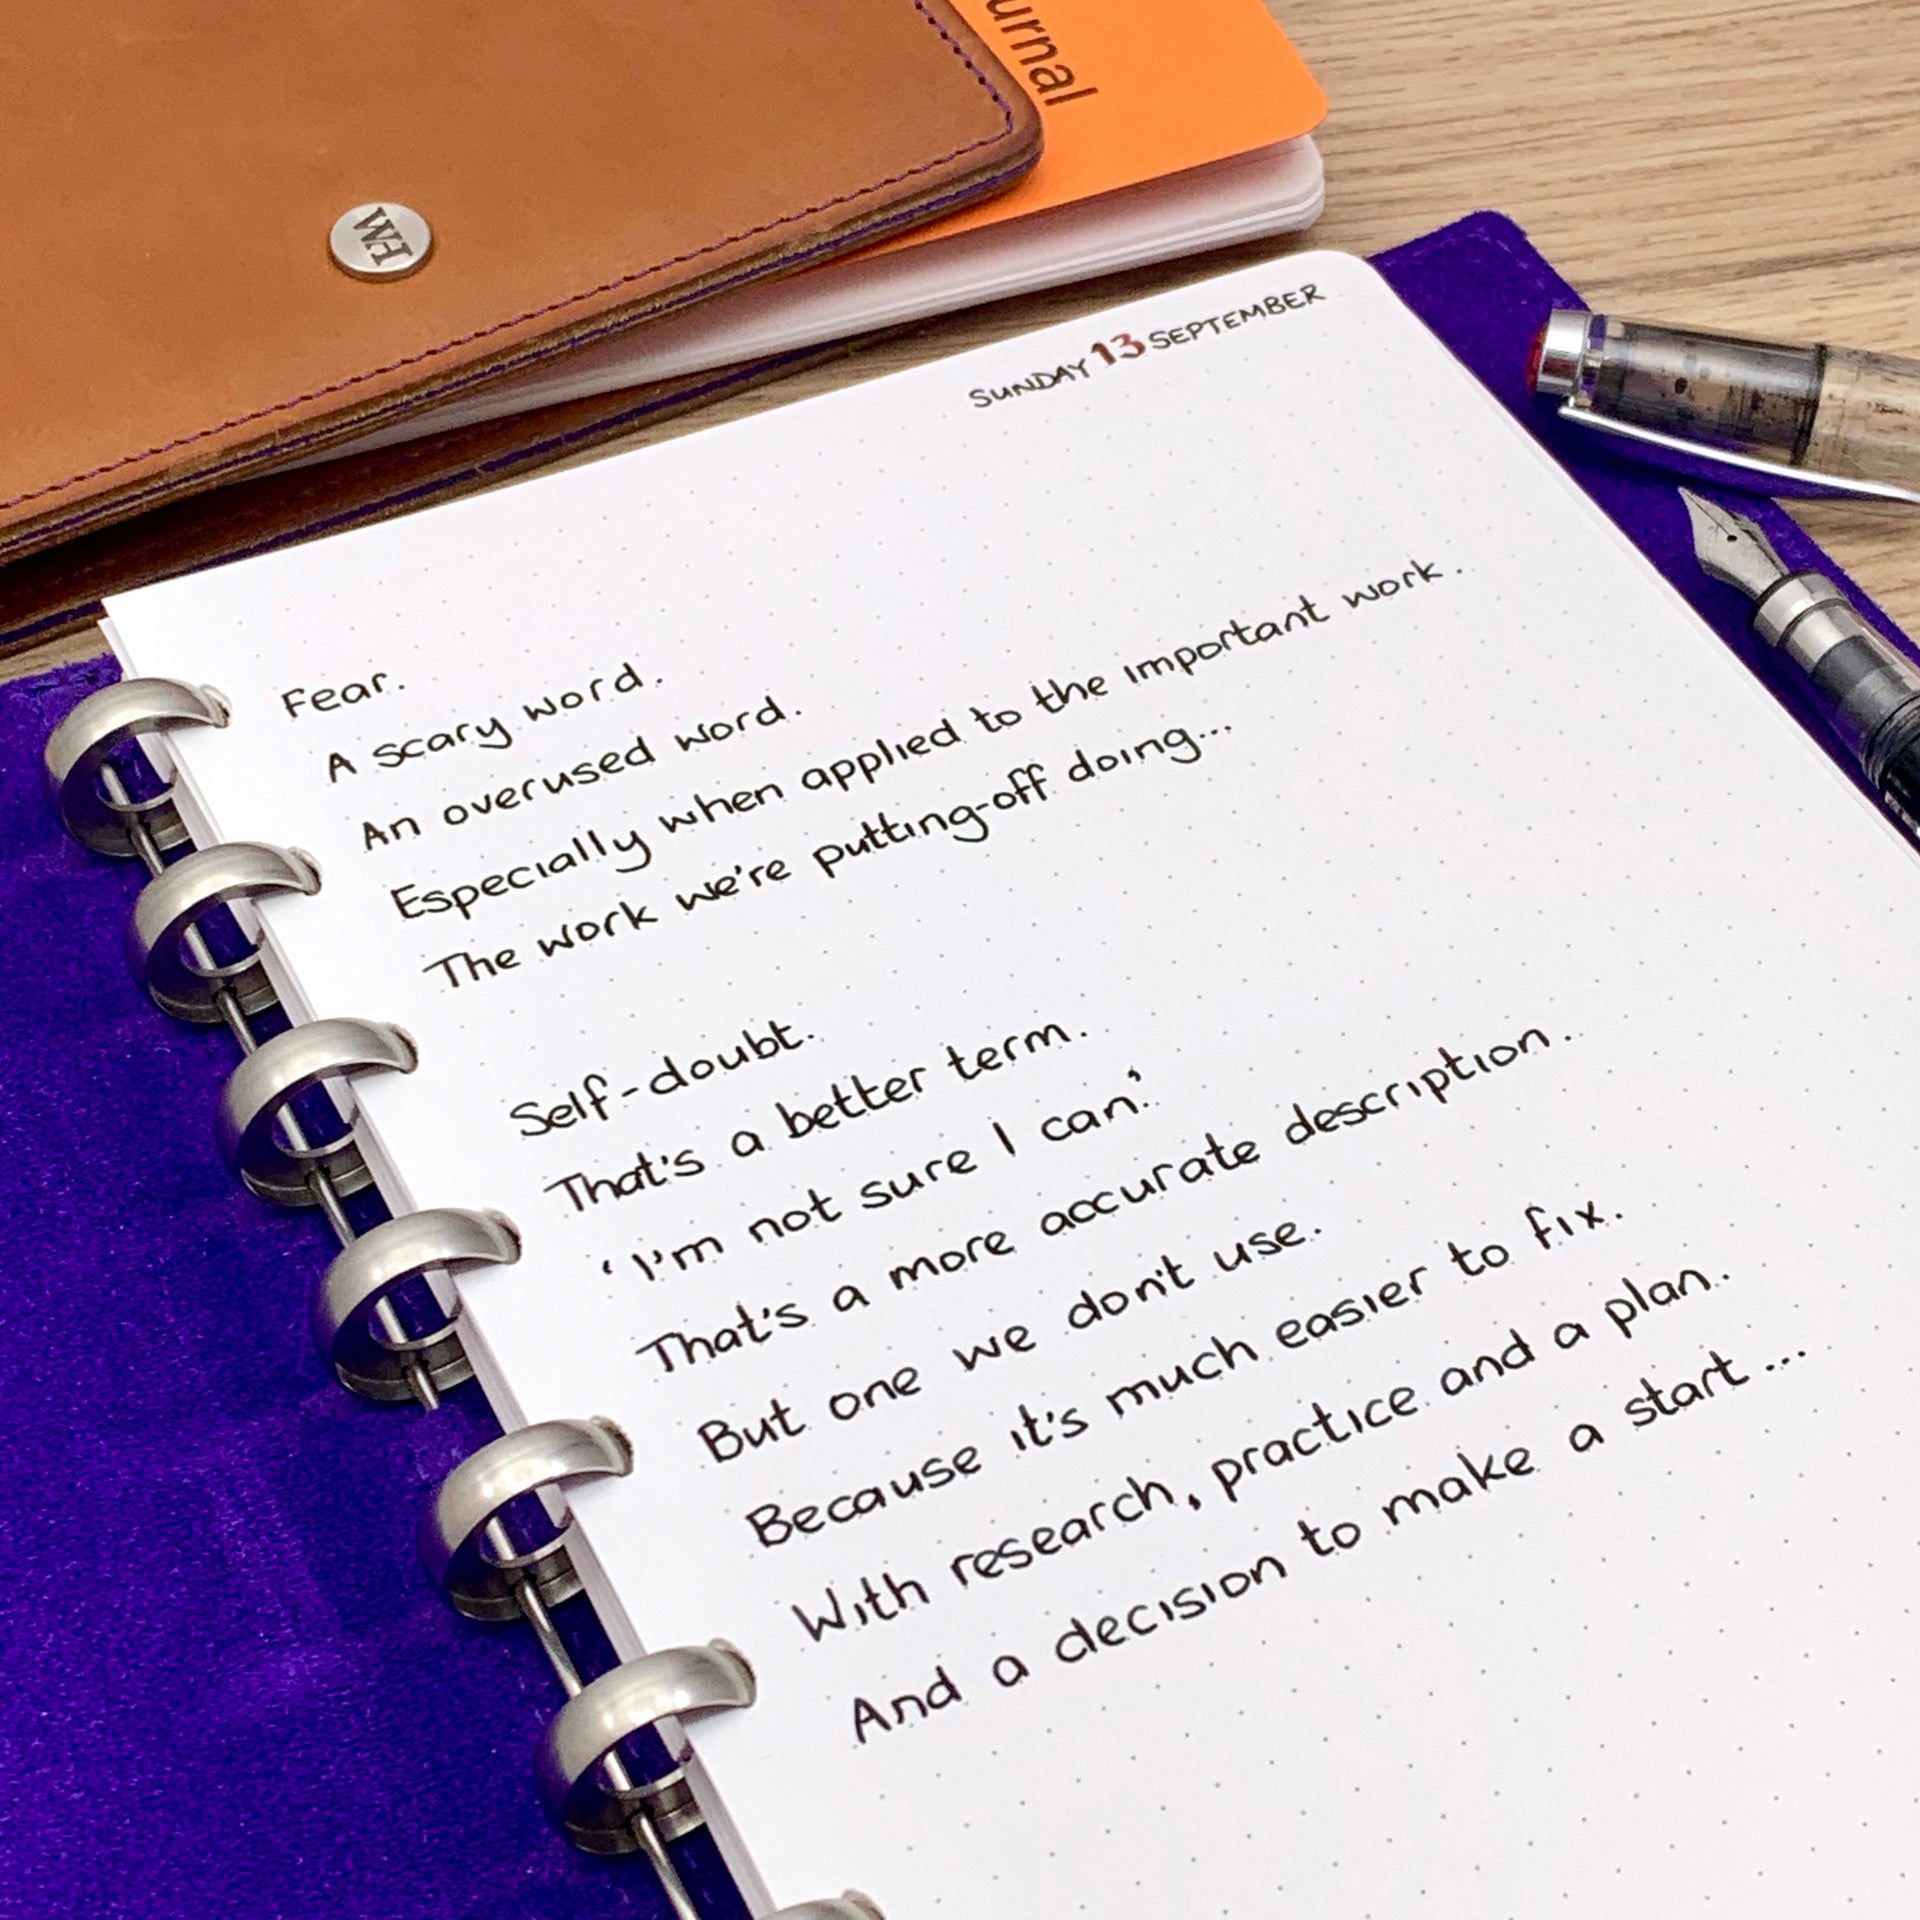 urnal
WFM
SUNDAY 13 SEPTEMBER
Fear.
A scary word.
An overused word.
Especially when applied to the important work.
The work we're putting-off doing...
Self-doubt.
That's a better term.
'I'm not sure I can.'
That's a more accurate description.
But one we don't use.
Because it's much easier to fix.
With research, practice and a plan.
And a decision to make a start...